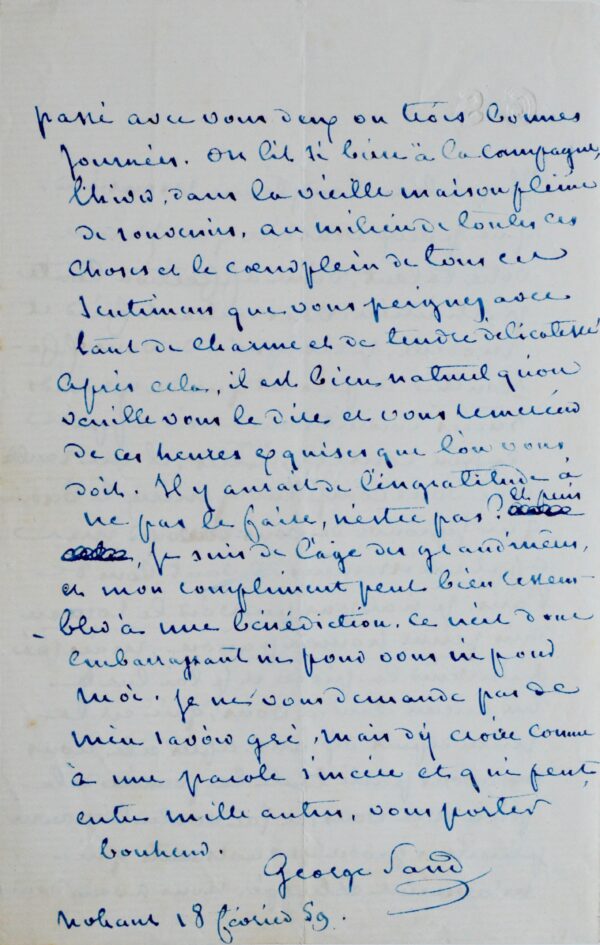 passé avec vous deux ou trois bonnes
journées. On lit si bien à la campagne,
l'hiver, dans la vieille maison pleine
de souvenirs, au milieu de toutes ces
choses et le cœur plein de tous ces
sentimens que vous peignez avec
tant de charme et de tendre délicatesse
Après cela, il est bien naturel qu'on
veuille vous le dire et vous remercier
de ces heures exquises que l'on vous
doit. Il y aurait de l'ingratitude à
ne pas le faire, n'est ce pas? Et puis
, je suis de l'âge des grand'mères,
et mon compliment peut bien ressem-
bler à une bénédiction. Ce n'est donc
embarrassant ni pour vous ni pour
moi. Je ne vous demande pas de
m'en savoir gré, mais d'y croire comme
à une parole sincère et qui peut,
entre mille autres, vous porter
bonheur.
George Sand
Nohant 18 février 59.